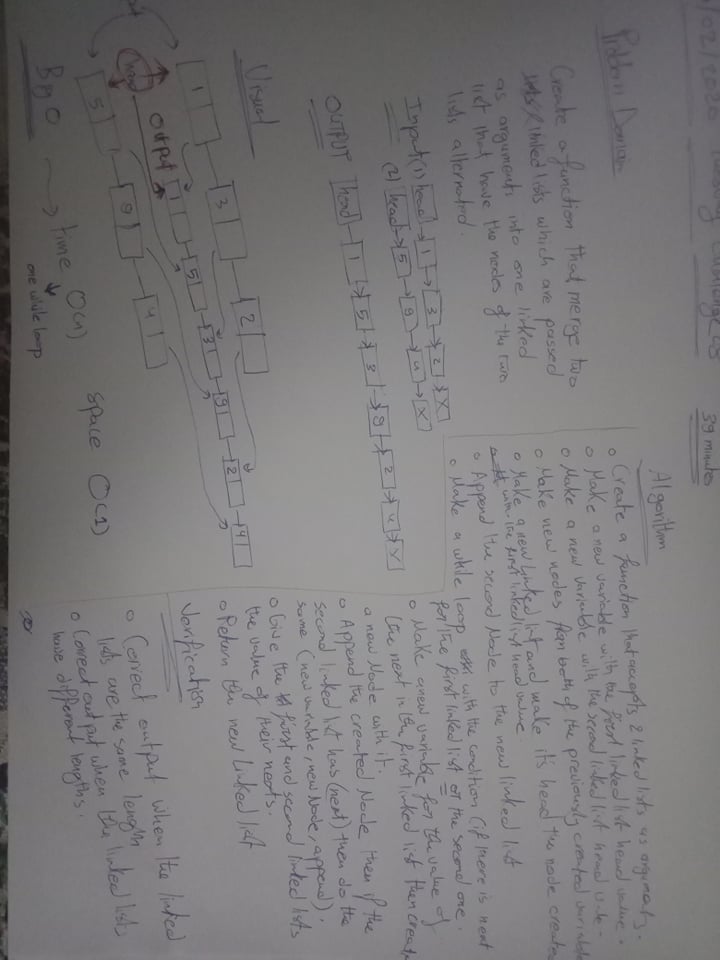 /02/2020
Challenges
39 minutes
Problem Domain
Create a function that merge two
linked lists which are passed
as arguments into one linked
list that have the nodes of the two
lists alternated.
Input (1) head → 1 → 3 → 2 → X
(2) head → 5 → 9 → 4 → X
OUTPUT head → 1 → 5 → 3 → 9 → 2 → 4 → X
Visual
1 3 2
Output 1 5 3 9 2 4
head
5 9 4
Big O → time O(n)
one while loop
space O(1)
Algorithm
o Create a function that accepts 2 linked lists as arguments.
o Make a new variable with the first linked list head value.
o Make a new variable with the second linked list head value.
o Make new nodes from both of the previously created variable
o Make a new linked list and make it's head the node created
with the first linked list head value
o Append the second Node to the new linked list
o Make a while loop with the condition (if there is next
for the first linked list or the second one.
o Make a new variable for the value of
the next in the first linked list then create
a new Node with it.
o Append the created Node then if the
second linked list has (next) then do the
same (new variable, new Node, append).
o Give the first and second linked lists
the value of their nexts.
o Return the new linked list
Verification
o Correct output when the linked
lists are the same length
o Correct output when the linked lists
have different lengths.